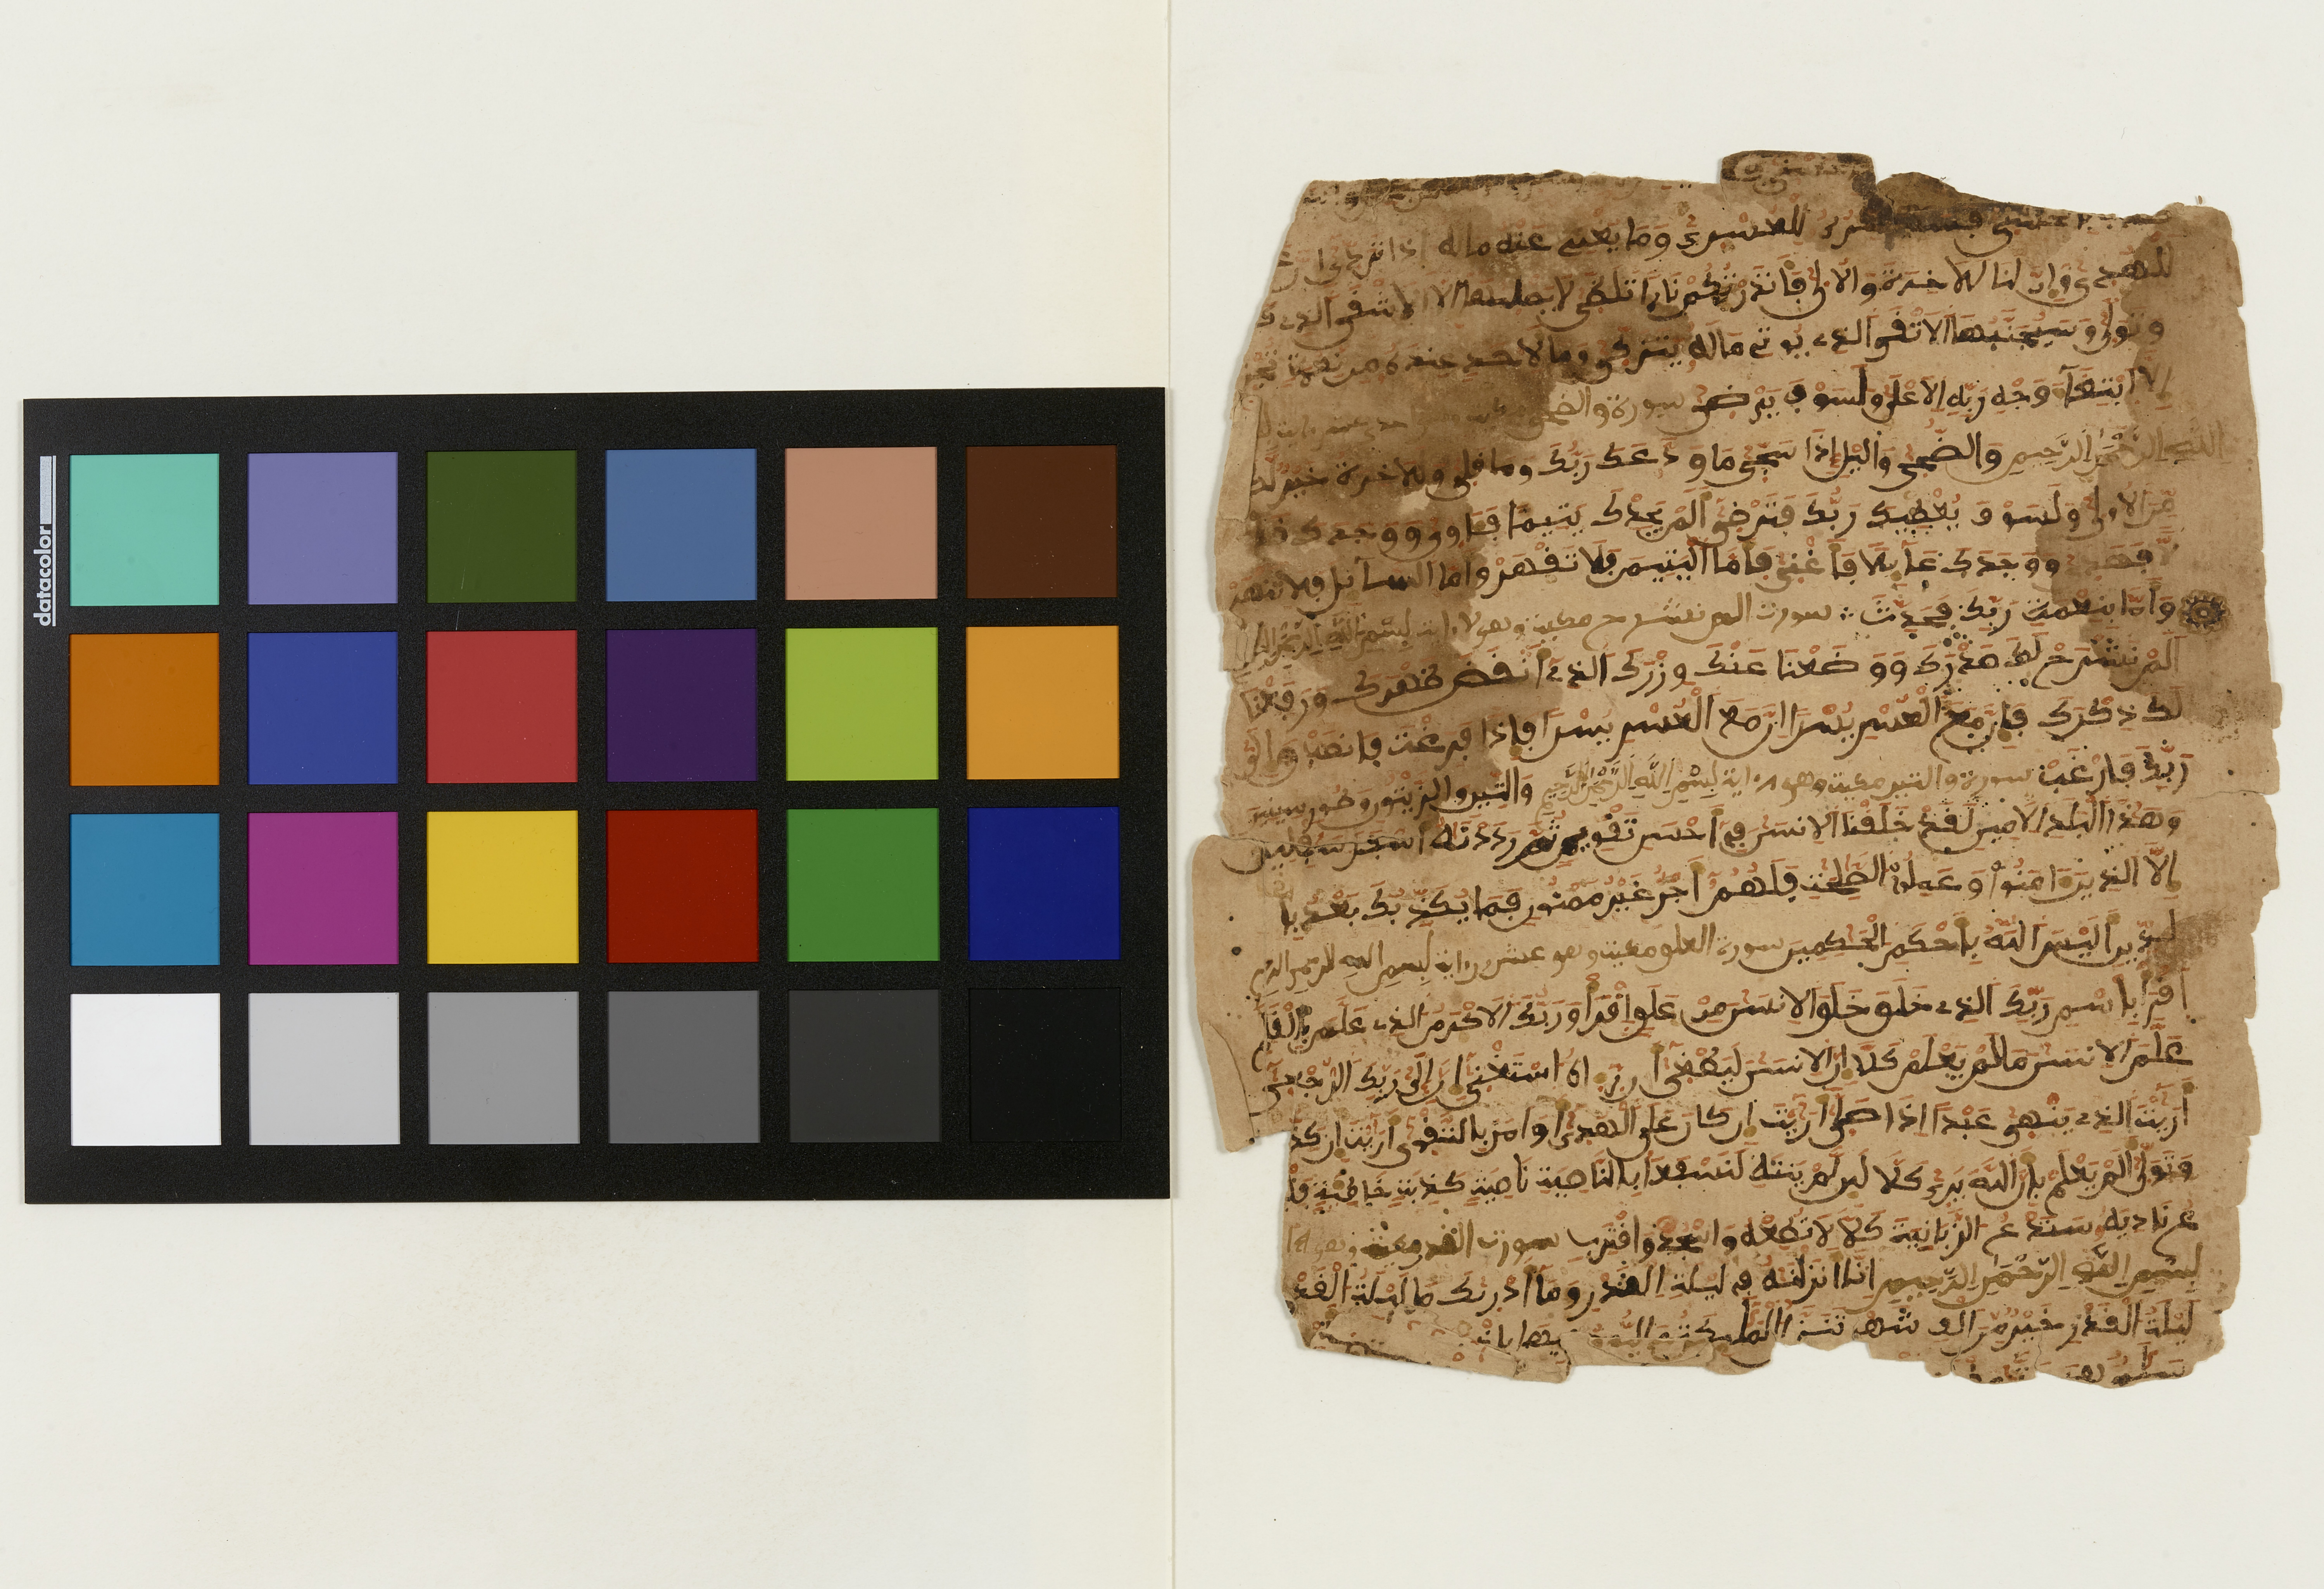 datacolor
للعسرى وما يغنى عنه ماله إذا تردى
للهدى وإن لنا للاخرة والاولى فأنذرتكم نارا تلظى لا يصليها إلا الاشقى الذى
وتولى وسيجنبها الاتقى الذى يوتى ماله يتزكى وما لاحد عنده من نعمة تجز
إلا ابتغآء وجه ربه الاعلى ولسوف يرضى سورة والضحى
الله الرحمن الرحيم والضحى واليل إذا سجى ما ودعك ربك وما قلى وللاخرة خير لك
من الاولى ولسوف يعطيك ربك فترضى ألم يجدك يتيما فئاوى ووجدك
فهدى ووجدك عآيلا فأغنى فأما اليتيم فلا تقهر وأما السآئل فلا تنهر
وأما بنعمت ربك فحدث سورت الم نشرح مكية وهى بسم الله الرحمن
ألم نشرح لك صدرك ووضعنا عنك وزرك الذى أنقض ظهرك ورفعنا
لك ذكرك فإن مع العسر يسرا إن مع العسر يسرا فإذا فرغت فانصب وإلى
ربك فارغب سورة والتين مكية وهى ٨ ءاية بسم الله الرحمن الرحيم والتين والزيتون وطور سينين
وهذا البلد الامين لقد خلقنا الانسن فى أحسن تقويم ثم رددنه أسفل سفلين
إلا الذين ءامنوا وعملوا الصلحت فلهم أجر غير ممنون فما يكذبك بعد با
لدين أليس الله بأحكم الحكمين سورة العلق مكية وهى عشرون ءاية بسم الله الرحمن الرحيم
اقرأ باسم ربك الذى خلق خلق الانسن من علق اقرأ وربك الاكرم الذى علم بالقلم
علم الانسن ما لم يعلم كلا إن الانسن ليطغى أن رءاه استغنى إن إلى ربك الرجعى
أرءيت الذى ينهى عبدا إذا صلى أرءيت إن كان على الهدى أو امر بالتقوى أرءيت إن كذ
وتولى ألم يعلم بأن الله يرى كلا لئن لم ينته لنسفعا بالناصية ناصية كذبة خاطئة فلـ
ع ناديه سندع الزبانية كلا لا تطعه واسجد واقترب سورت القدر مكية وهى
بسم الله الرحمن الرحيم إنا أنزلنه فى ليلة القدر ومآ أدريك ما ليلة القد
ليلة القدر خير من الف شهر تنزل الملئكة
سلم هى